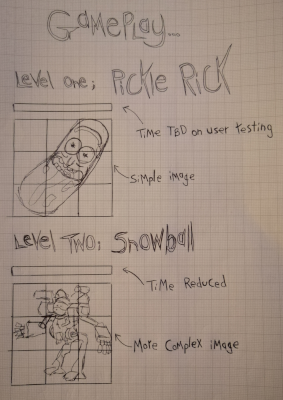 GAMEPLAY...
Level one; PICKLE RICK
TiMe TBD on user testing
Simple image
Level Two; Snowball
TiMe Reduced
More Complex image